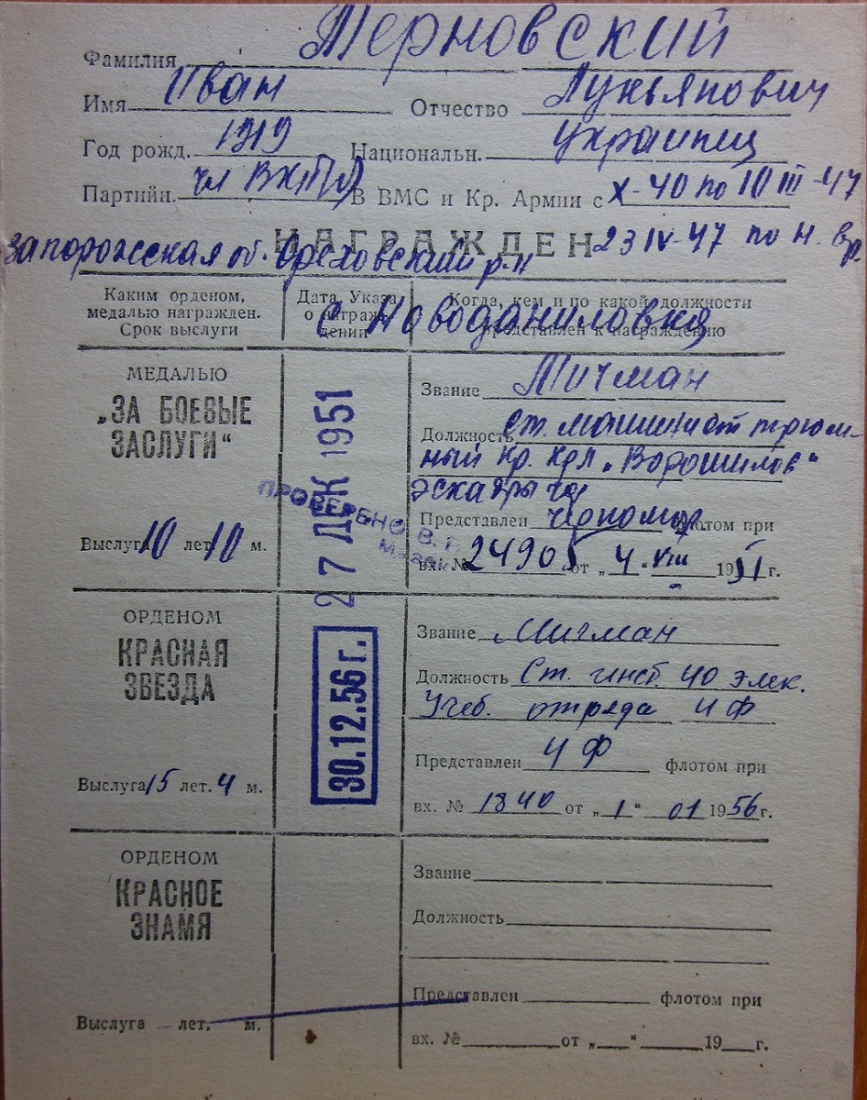 Фамилия Терновский
Имя Иван Отчество Лукьянович
Год рожд. 1919 Национальн. украинец
Партийн. чл ВКП(б) В ВМС и Кр. Армии с X-40 по 10 III-47
НАГРАЖДЕН 23 IV-47 по н. вр.
Запорожская об. Ореховский р-н
с Новоданиловка
Каким орденом, медалью награжден. Срок выслуги
Дата Указа о награждении
Когда, кем и по какой должности представлен к награждению
МЕДАЛЬЮ
„ЗА БОЕВЫЕ
ЗАСЛУГИ“
Выслуга 10 лет 10 м.
27 ДЕК 1951
ПРОВЕРЕНО
Звание Мичман
Должность ст. машинист трюм-
ный кр. крл „Ворошилов“
эскадры чф
Представлен Черномор. флотом при
вх. № 24905 от „4“ VIII 1951 г.
ОРДЕНОМ
КРАСНАЯ
ЗВЕЗДА
Выслуга 15 лет. 4 м.
30.12.56 г.
Звание Мичман
Должность Ст. инст. ЧО элек.
Учеб. отряда ЧФ
Представлен ЧФ флотом при
вх. № 1840 от „1“ 01 1956 г.
ОРДЕНОМ
КРАСНОЕ
ЗНАМЯ
Выслуга лет. м.
Звание
Должность
Представлен флотом при
вх. № от „ “ 19 г.